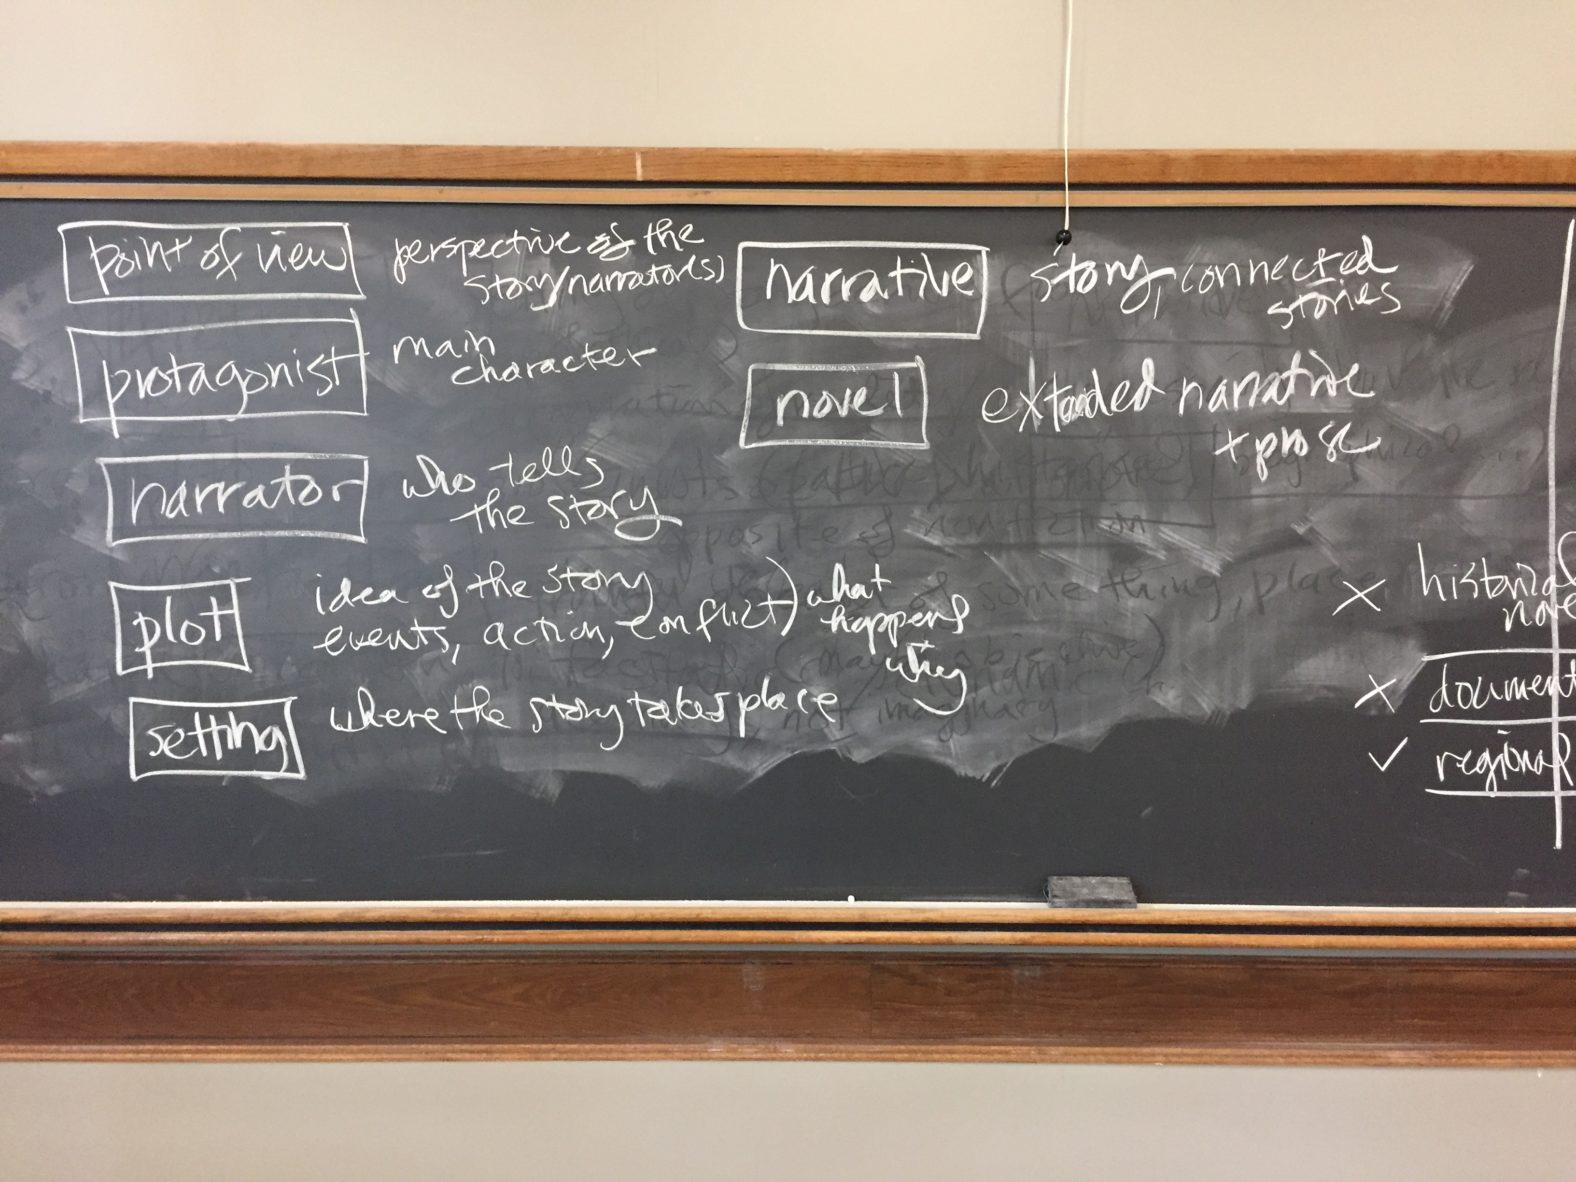 point of view
perspective of the
story/narrator(s)
protagonist
main
character
narrator
who tells
the story
plot
idea of the story
events, action, conflict)
what
happens
why
setting
where the story takes place
narrative
story, connected
stories
novel
extended narrative
+ prose
X historical
nove
X document
✓ regional
opposite of non fiction
of something, place
not imaginary